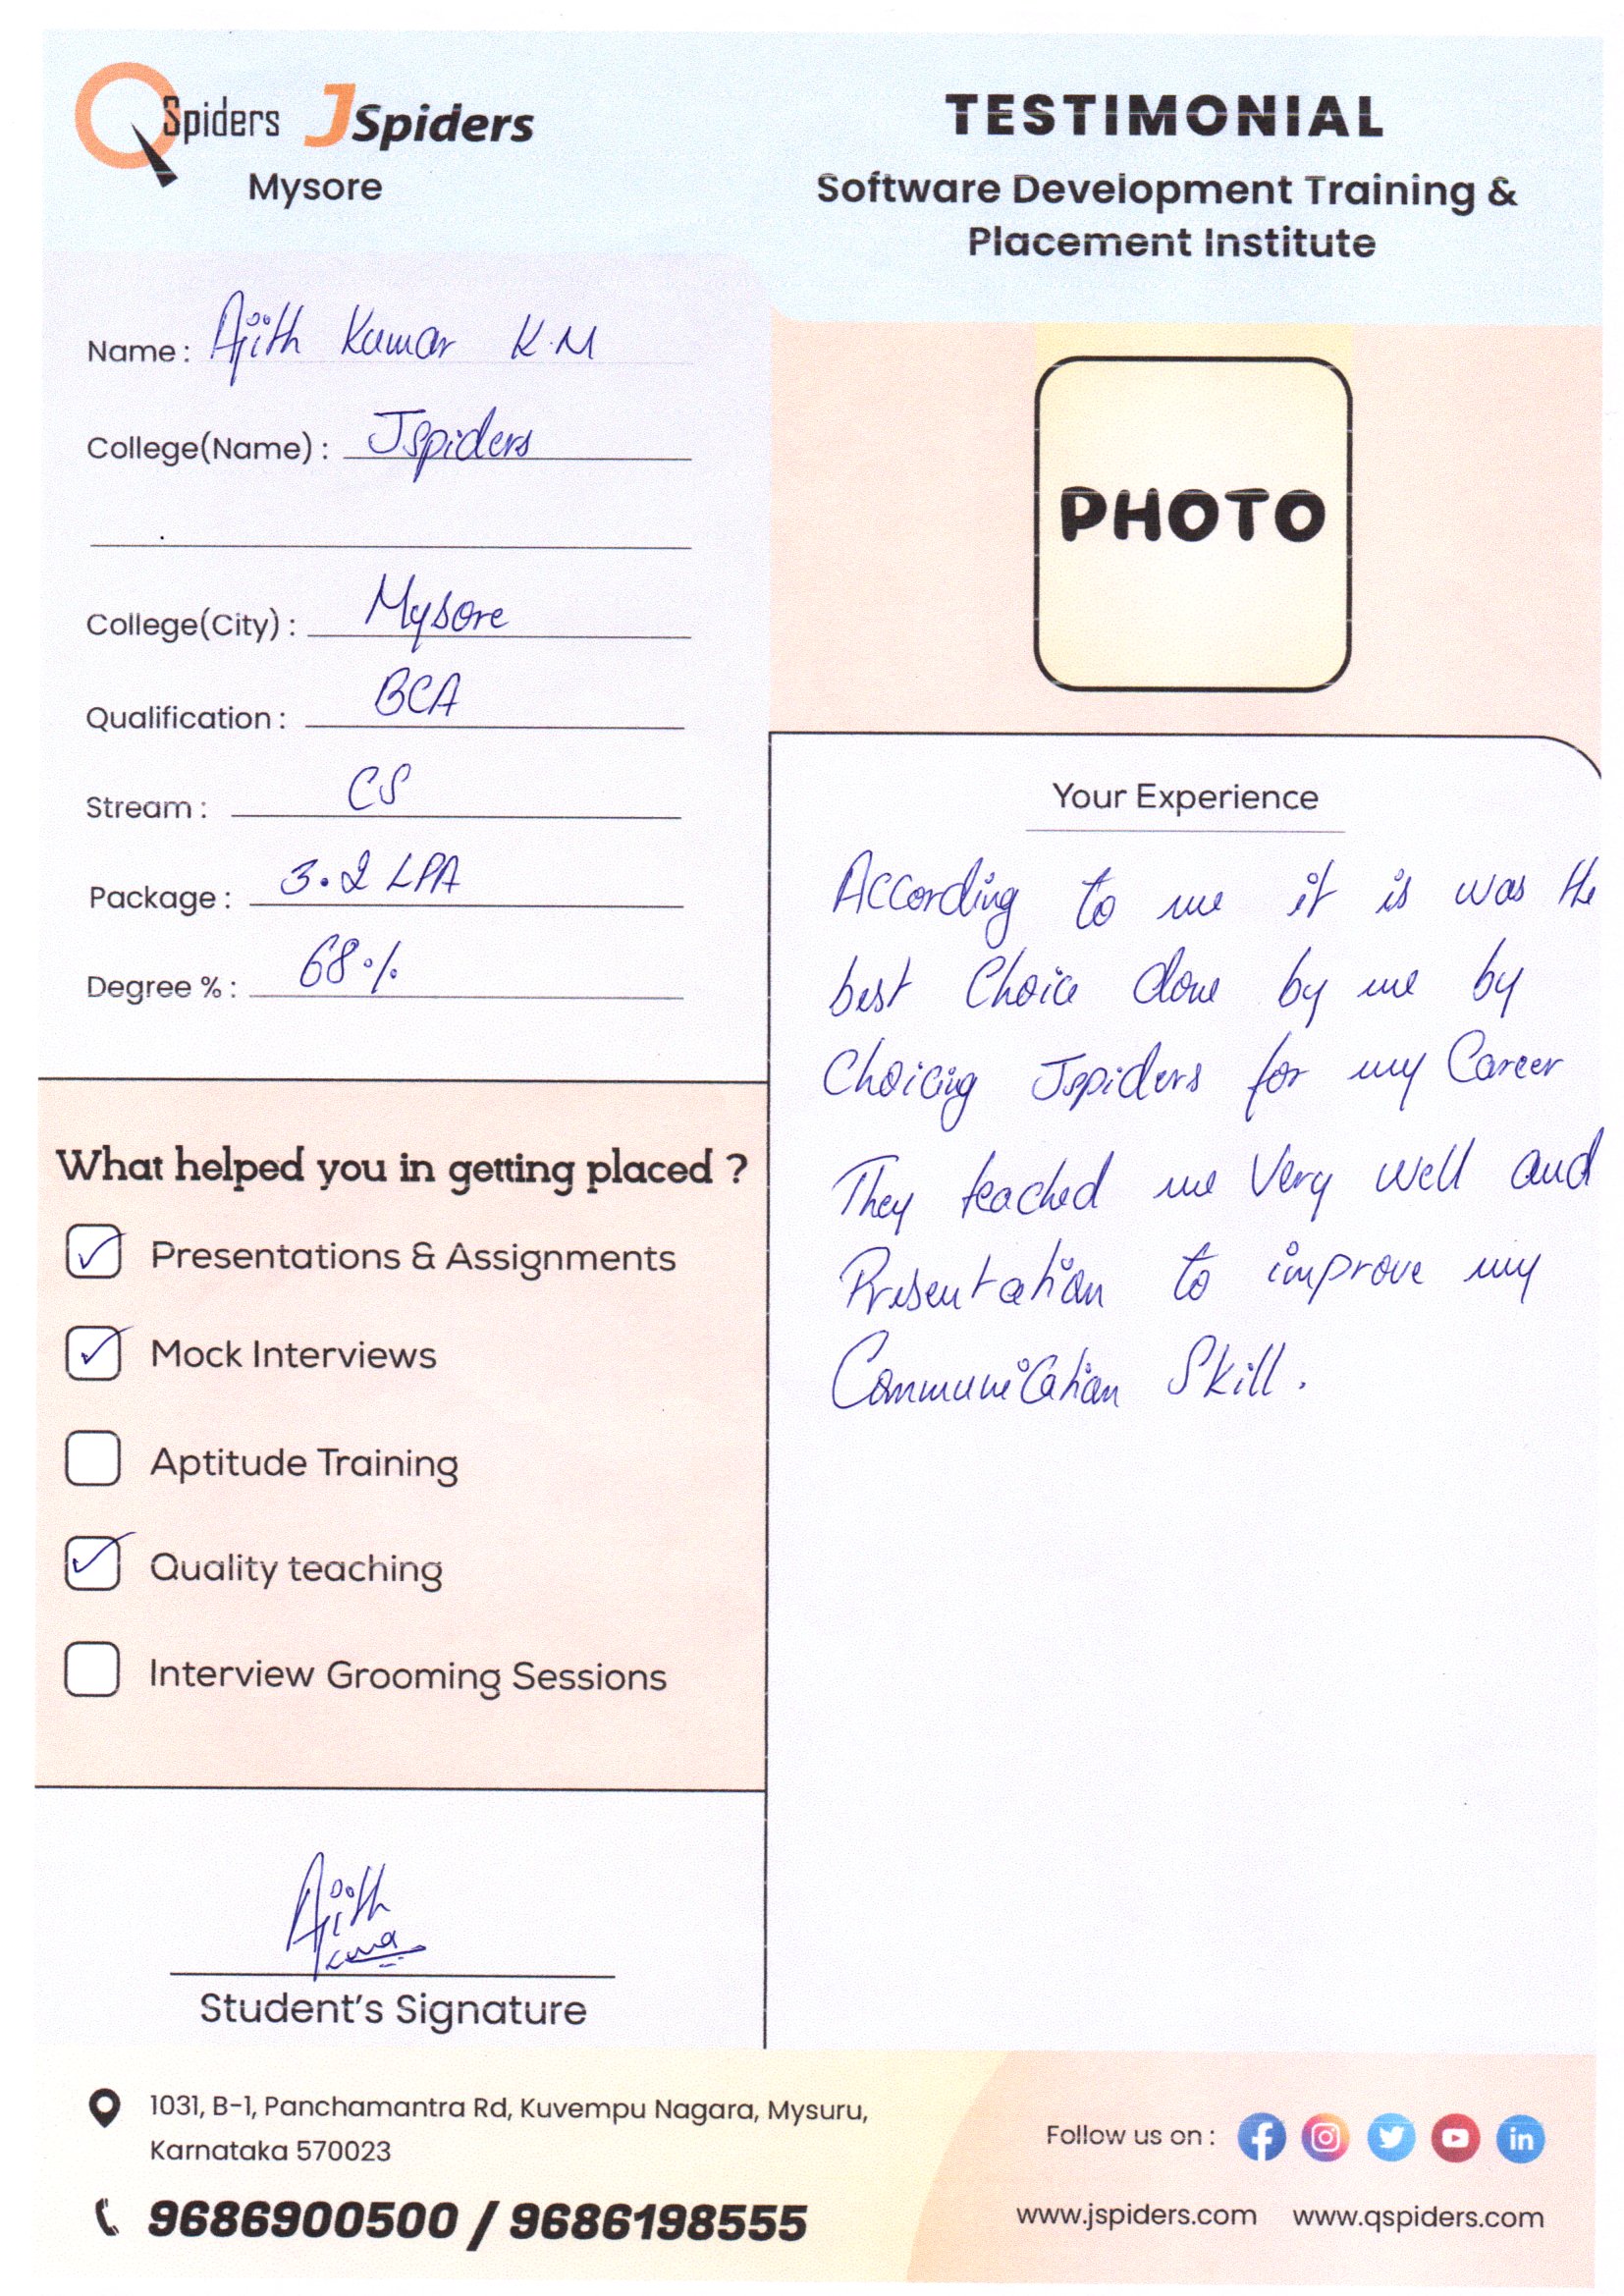 QSpiders JSpiders
Mysore
TESTIMONIAL
Software Development Training &
Placement Institute
Name : Ajith Kumar K.M
College(Name) : Jspiders
College(City) : Mysore
Qualification : BCA
Stream : CS
Package : 3.2 LPA
Degree % : 68%
PHOTO
What helped you in getting placed ?
Presentations & Assignments
Mock Interviews
Aptitude Training
Quality teaching
Interview Grooming Sessions
Ajith
Student's Signature
Your Experience
According to me it is was the
best Choice done by me by
Choicing Jspiders for my Career
They teached me Very well and
Presentation to improve my
Communication Skill.
1031, B-1, Panchamantra Rd, Kuvempu Nagara, Mysuru,
Karnataka 570023
9686900500 / 9686198555
Follow us on :
www.jspiders.com www.qspiders.com